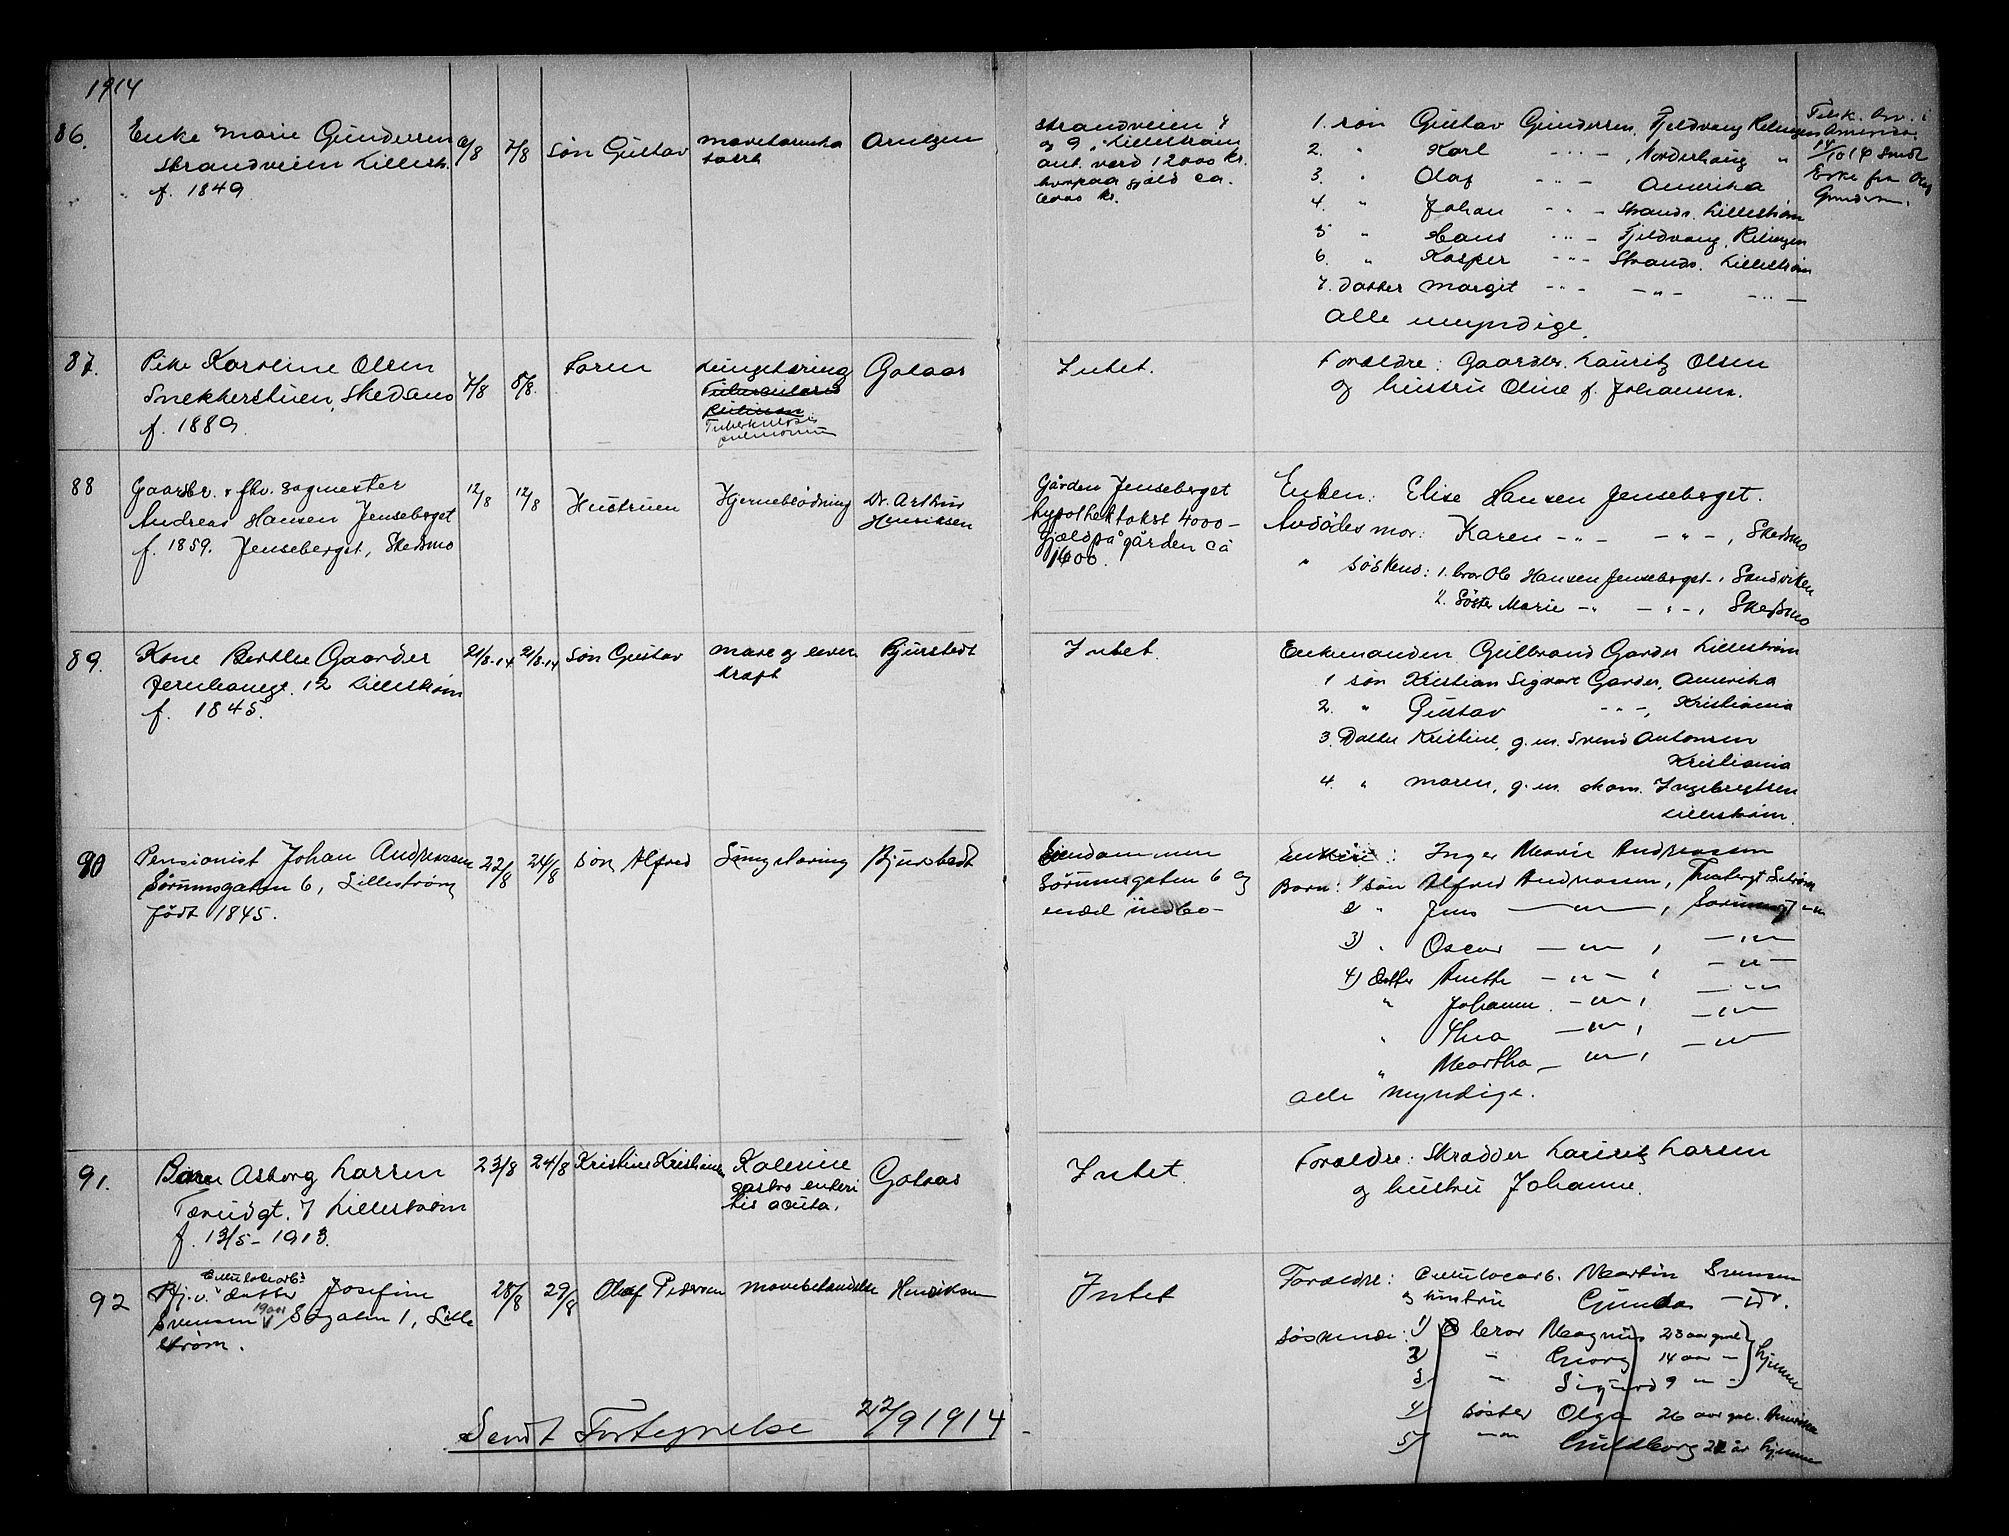 1914
86. Enke Marie Gundersen 6/8 7/8 Søn Gustav mavetarmka Arntzen
Strandveien Lillestr. tarrh
f. 1849
Strandveien 7
og 9, Lillestrøm
ant. værd 12000 kr.
hvorpaa gjæld ca.
6000 kr.
1. søn Gustav Gundersen, Fjeldvang Rælingen
2. " Karl - " - Norderhaug "
3. " Olaf - " - Amerika
4. " Johan - " - Strandv. Lillestrøm
5 " Hans - " - Fjeldvang, Rælingen
6. " Kasper - " - Strandv. Lillestrøm
7. datter Margit - " - - " - - " -
Alle myndige.
i
Amerika.
14/10 14 Sendt
fra Olaf
Gundersen.
87. Pike Karoline Olsen 4/8 8/8. Faren Lungetæring Gotaas
Snekkerstuen, Skedsmo
f. 1889.
Tuberkulosis
pulmonum
Intet.
Forældre: Gaardbr. Lauritz Olsen
og hustru Oline f. Johansen.
88 Gaardbr. & fhv. sagmester 12/8 12/8 Hustruen Hjerneblödning Dr. Arthur
Andreas Hansen Jenseberget Henriksen
f. 1859. Jenseberget, Skedsmo
Gården Jenseberget
hypothektakst 4000 -
Gjæld på gården ca
1600.
Enken: Elise Hansen Jenseberget.
Avdödes mor: Karen - " - - " -, Skedsmo
" söskend: 1. bror Ole Hansen Jenseberget, Sandviken
2. Söster Marie - " - " -, Skedsmo
89. Kone Berthe Gaarder 21/8-14 21/8-14 Søn Gustav mave og lever Bjurstedt
Jernbanegt. 12 Lillestrøm kræft
f. 1845.
Intet.
Enkemanden Gulbrand Garder Lillestrøm
1 søn Kristian Sigvart Garder, Amerika
2. " Gustav - " -, Kristiania
3. Datter Kristine, g.m. Svend Antonsen
Kristiania
4. " Maren, g.m. Ingebrigtsen
Lillestrøm.
90 Pensionist Johan Andreassen 22/8 24/8 Søn Alfred Lungetæring Bjurstedt
Sørumsgaten 6, Lillestrøm
født 1845.
Eiendommen
Sörumsgaten 6 og
endel indbo -
Enke: Inger Marie Andreassen
Barn: 1) søn Alfred Andreassen,
2 " Jens - " -, Sørumsgt - " -
3) " Oscar - " -, - " -
4) datter Anette - " -, - " -
" Johanne. - " -, - " -
" Thea - " -, - " -
" Martha - " -, - " -
alle myndige.
91. Barn Asborg Larsen 23/8 24/8 Kristine Kristiansen Kolerine Gotaas
Tærudgt. 7 Lillestrøm gastro enteri
f. 13/5-1913. tis acuta.
Intet.
Forældre: Skrædder Lauritz Larsen
og hustru Johanne.
92 Hj.v. datter Josefine 28/8 29/8 Olaf Pedersen Henriksen
Svensen, Søgaten 1, Lille
strøm.
Intet
Forældre: Martin Svensen
og hustru Gunda - " -.
Söskende: 1) bror Magnus 23 aar gml } hjemme
2) - " Georg 14 aar -
3) - " Sigurd 9 " -
4) söster Olga 26 aar gml. Amerika
5) - " - Guldborg 21 år hjemme
Sendt Fortegnelse 22/9 1914